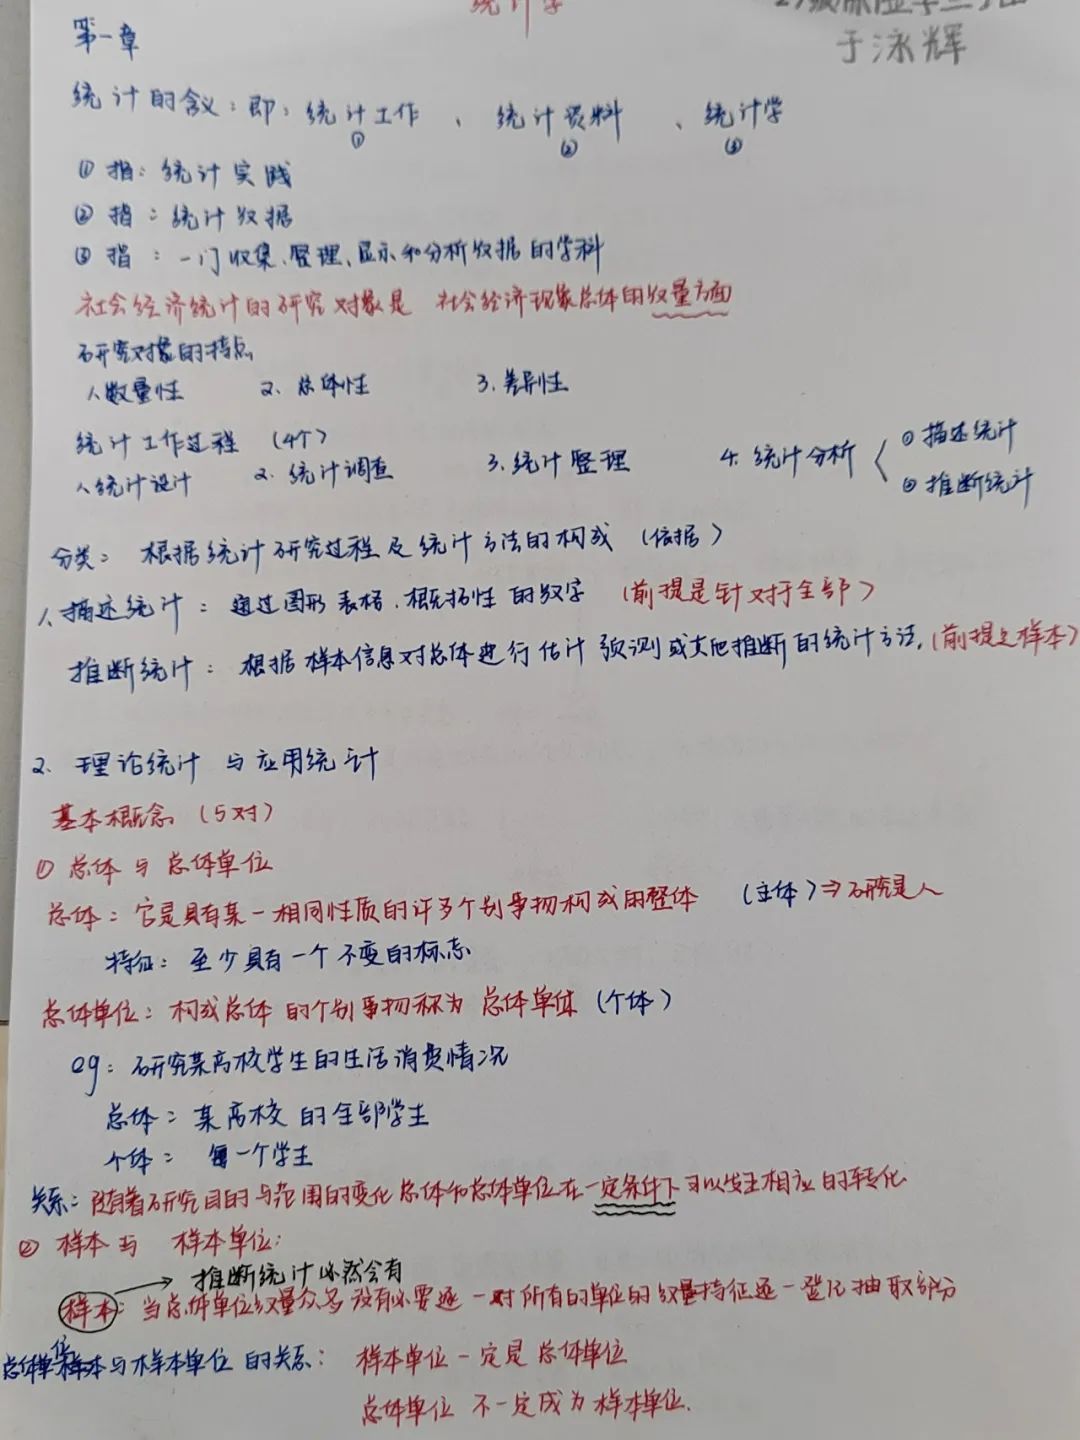 统计学
于泳辉
第一章
统计的含义：即：统计工作①、统计资料②、统计学③
①指：统计实践
②指：统计数据
③指：一门收集、整理、显示和分析数据的学科
社会经济统计的研究对象是 社会经济现象总体的数量方面
研究对象的特点
1.数量性 2.总体性 3.差异性
统计工作过程（4个）
1.统计设计 2.统计调查 3.统计整理 4.统计分析 ①描述统计 ②推断统计
分类：根据统计研究过程及统计方法的构成（依据）
1.描述统计：通过图形表格、概括性的数字（前提是针对于全部）
推断统计：根据样本信息对总体进行估计预测或其他推断的统计方法.（前提是样本）
2.理论统计与应用统计
基本概念（5对）
①总体与总体单位
总体：它是具有某一相同性质的许多个别事物构成的整体（主体）⇒研究是人
特征：至少具有一个不变的标志
总体单位：构成总体的个别事物称为总体单体（个体）
eg：研究某高校学生的生活消费情况
总体：某高校的全部学生
个体：每一个学生
关系：随着研究目的与范围的变化总体和总体单位在一定条件下可以发生相应的转化
②样本与样本单位：
→推断统计必然会有
样本：当总体单位数量众多没有必要逐一对所有的单位的数量特征逐一登记抽取部分
总体单位与样本单位的关系：样本单位一定是总体单位
总体单位不一定成为样本单位.